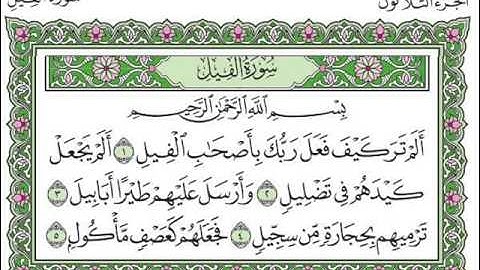 الجزء الثلاثون
سورة الفيل
سُورَةُ الْفِيلِ
بِسْمِ اللَّهِ الرَّحْمَٰنِ الرَّحِيمِ
أَلَمْ تَرَ كَيْفَ فَعَلَ رَبُّكَ بِأَصْحَابِ الْفِيلِ ١ أَلَمْ يَجْعَلْ
كَيْدَهُمْ فِي تَضْلِيلٍ ٢ وَأَرْسَلَ عَلَيْهِمْ طَيْرًا أَبَابِيلَ ٣
تَرْمِيهِم بِحِجَارَةٍ مِّن سِجِّيلٍ ٤ فَجَعَلَهُمْ كَعَصْفٍ مَّأْكُولٍ ٥